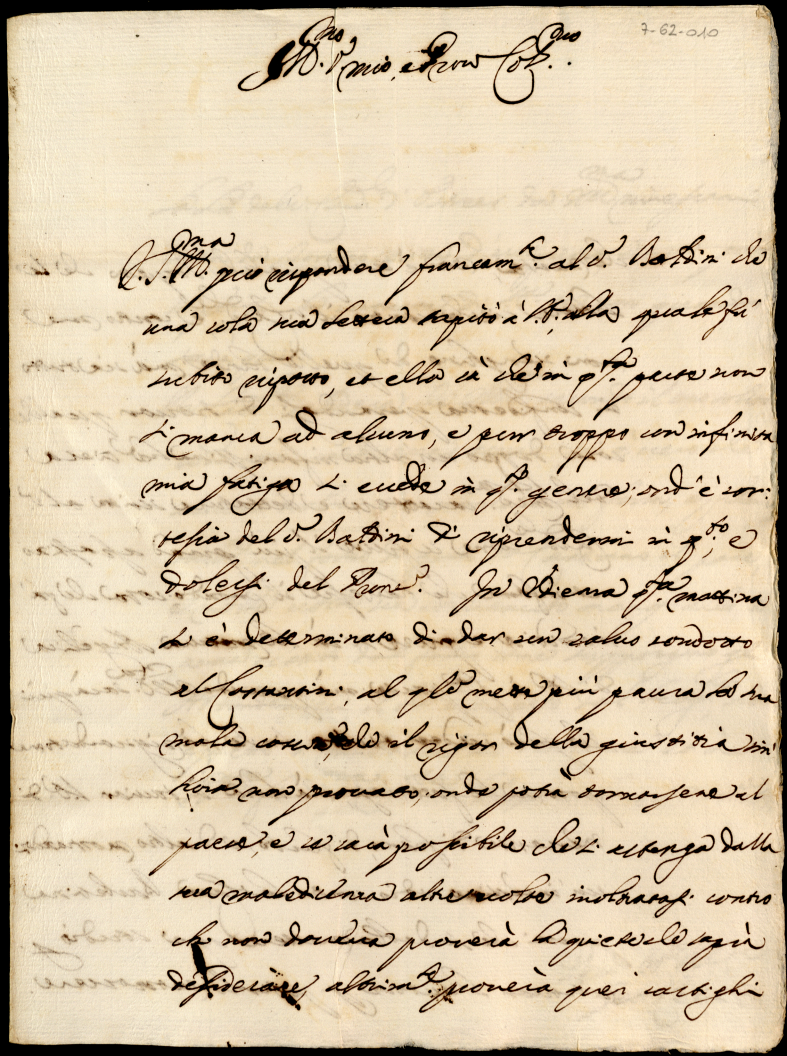 7-62-010
Ill.mo S.r mio, e Pron Col.mo
V. S. Ill.ma può rispondere francam.te al S.r Battini che
una sola sua lettera capitò à M., alla quale fù
subito risposto, et ella sà che in q.ta parte non
si manca ad alcuno, e pur troppo con infinita
mia fatiga si eccede in q.to genere; ond'è cor:
tesia del S.r Battini di riprendermi in q.to, e
dolersi del Pron.e. In Siena q.ta mattina
si è determinato di dar un salvo condotto
al Costantini, al q.le mette più paura la sua
mala, che il rigor della giustitia sin'
hora non provato, onde potrà tornarsene al
paese, e se sarà possibile che si astenga dalla
sua maledicenza altre volte inoltratasi contro
chi non doveva proverà la quiete che saprà
desiderare, altrim.te proverà quei castighi